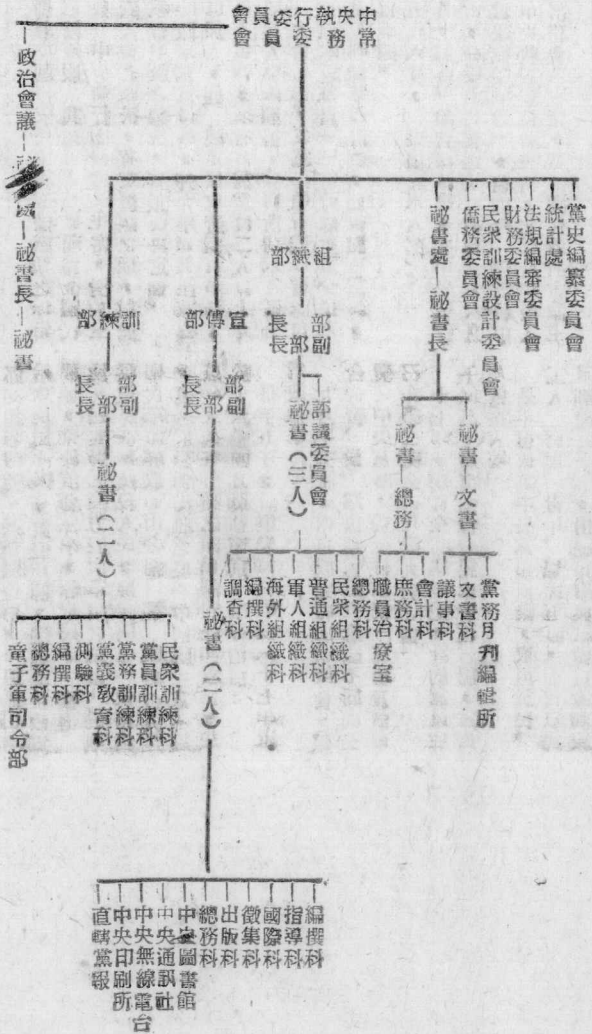 中央執行委員會
常務委員會
黨史編纂委員會
統計處
法規編審委員會
財務委員會
民衆訓練設計委員會
僑務委員會
祕書處
祕書長
祕書
文書
黨務月刊編
所
文書科
議事科
祕書
總務
會計科
庶務科
職員治療室
組織部
部長
副部長
評議委員會
祕書（三人）
總務科
民衆組織科
普通組織科
軍人組織科
海外組織科
編撰科
調查科
宣傳部
部長
副部長
祕書（二人）
編撰科
指導科
國際科
徵集科
出版科
總務科
中央圖書館
中央通訊社
中央無線電台
中央印刷所
直轄黨報
訓練部
部長
副部長
祕書（二人）
民衆訓練科
黨員訓練科
黨務訓練科
黨義教育科
測驗科
編撰科
總務科
童子軍司令部
政治會議
祕書長
祕書